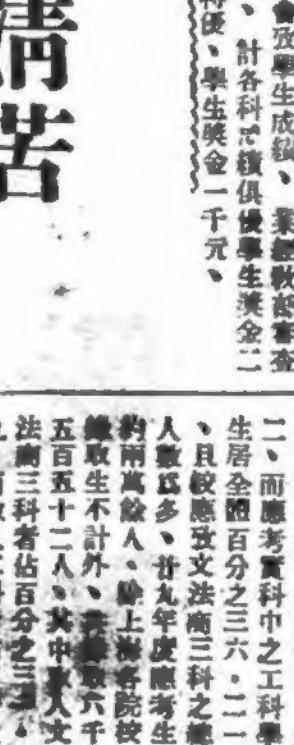 會考學生成績、業經教部審查
、計各科成績俱優學生獎金二
特優、學生獎金一千元、
清苦
二、而應考實科中之工科學
生居全體百分之三六•二一
、且較應考文法商三科之總
人數爲多、廿九年度應考生
約兩萬餘人、除上海各院校
錄取生不計外、六千
五百五十二人、其中人文
法商三科者佔百分之三